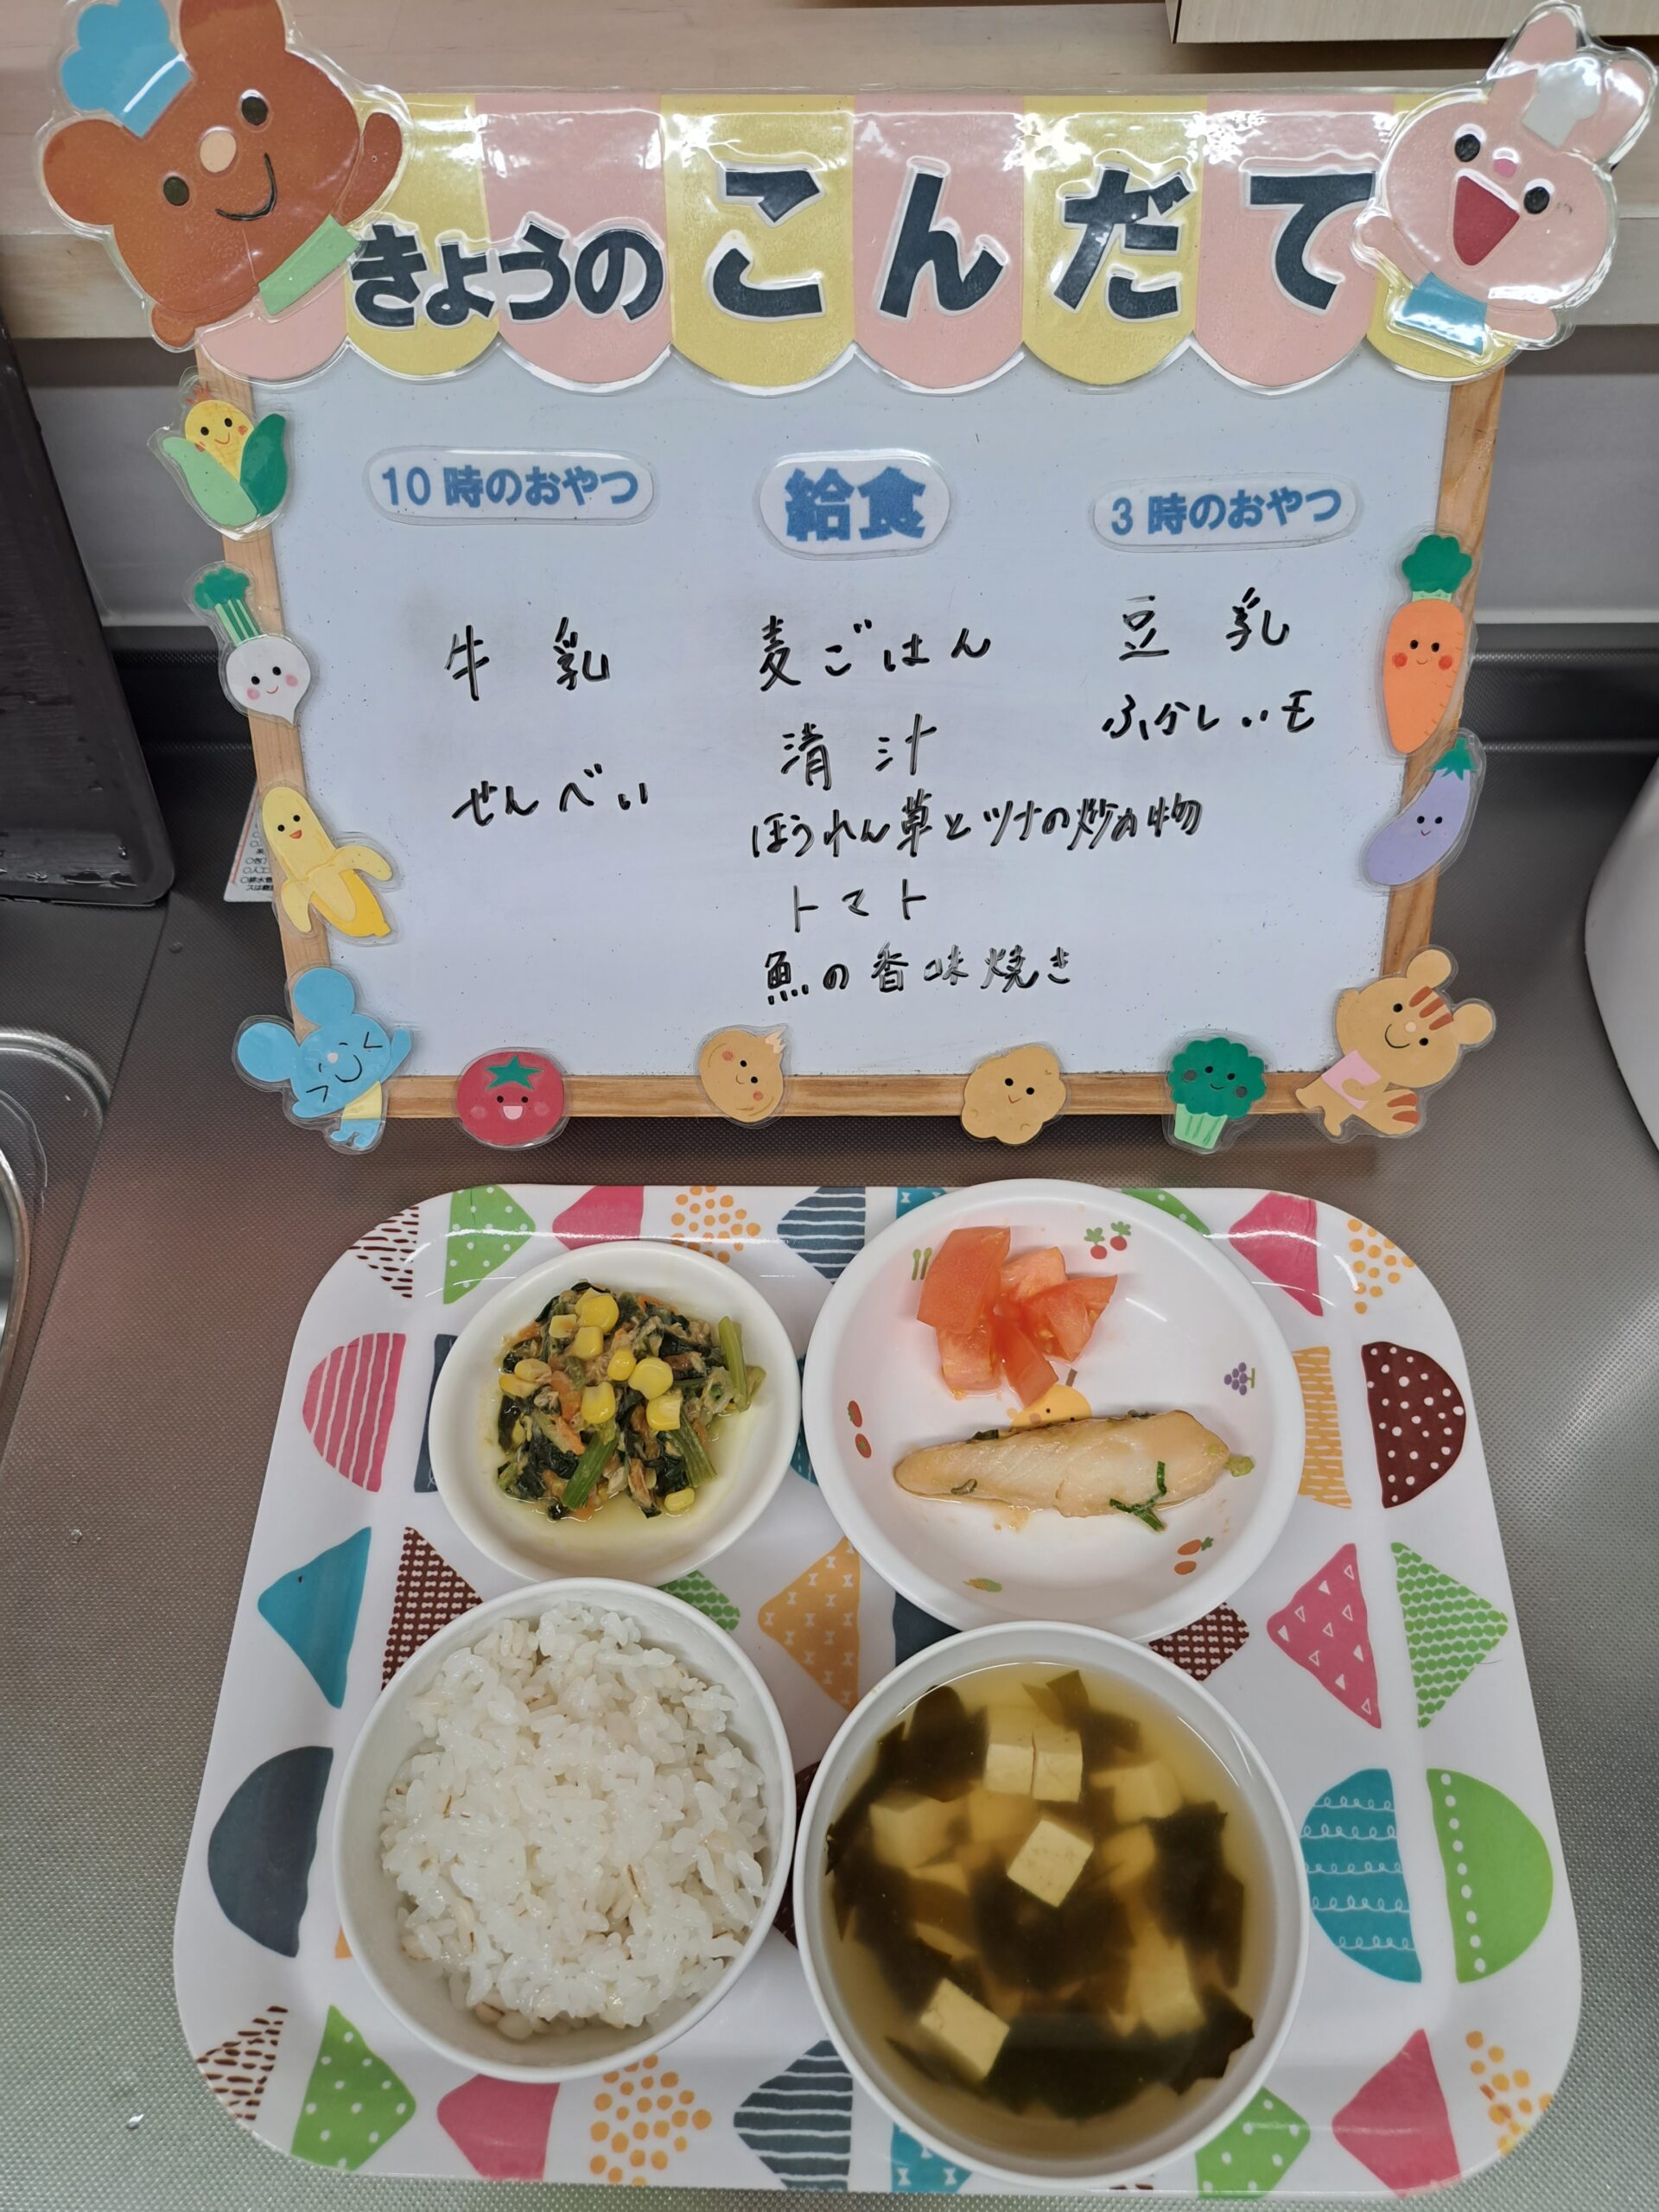 きょうの こんだて
10時のおやつ
牛乳
せんべい
給食
麦ごはん
清汁
ほうれん草とツナの炒め物
トマト
魚の香味焼き
3時のおやつ
豆乳
ふかしいモ